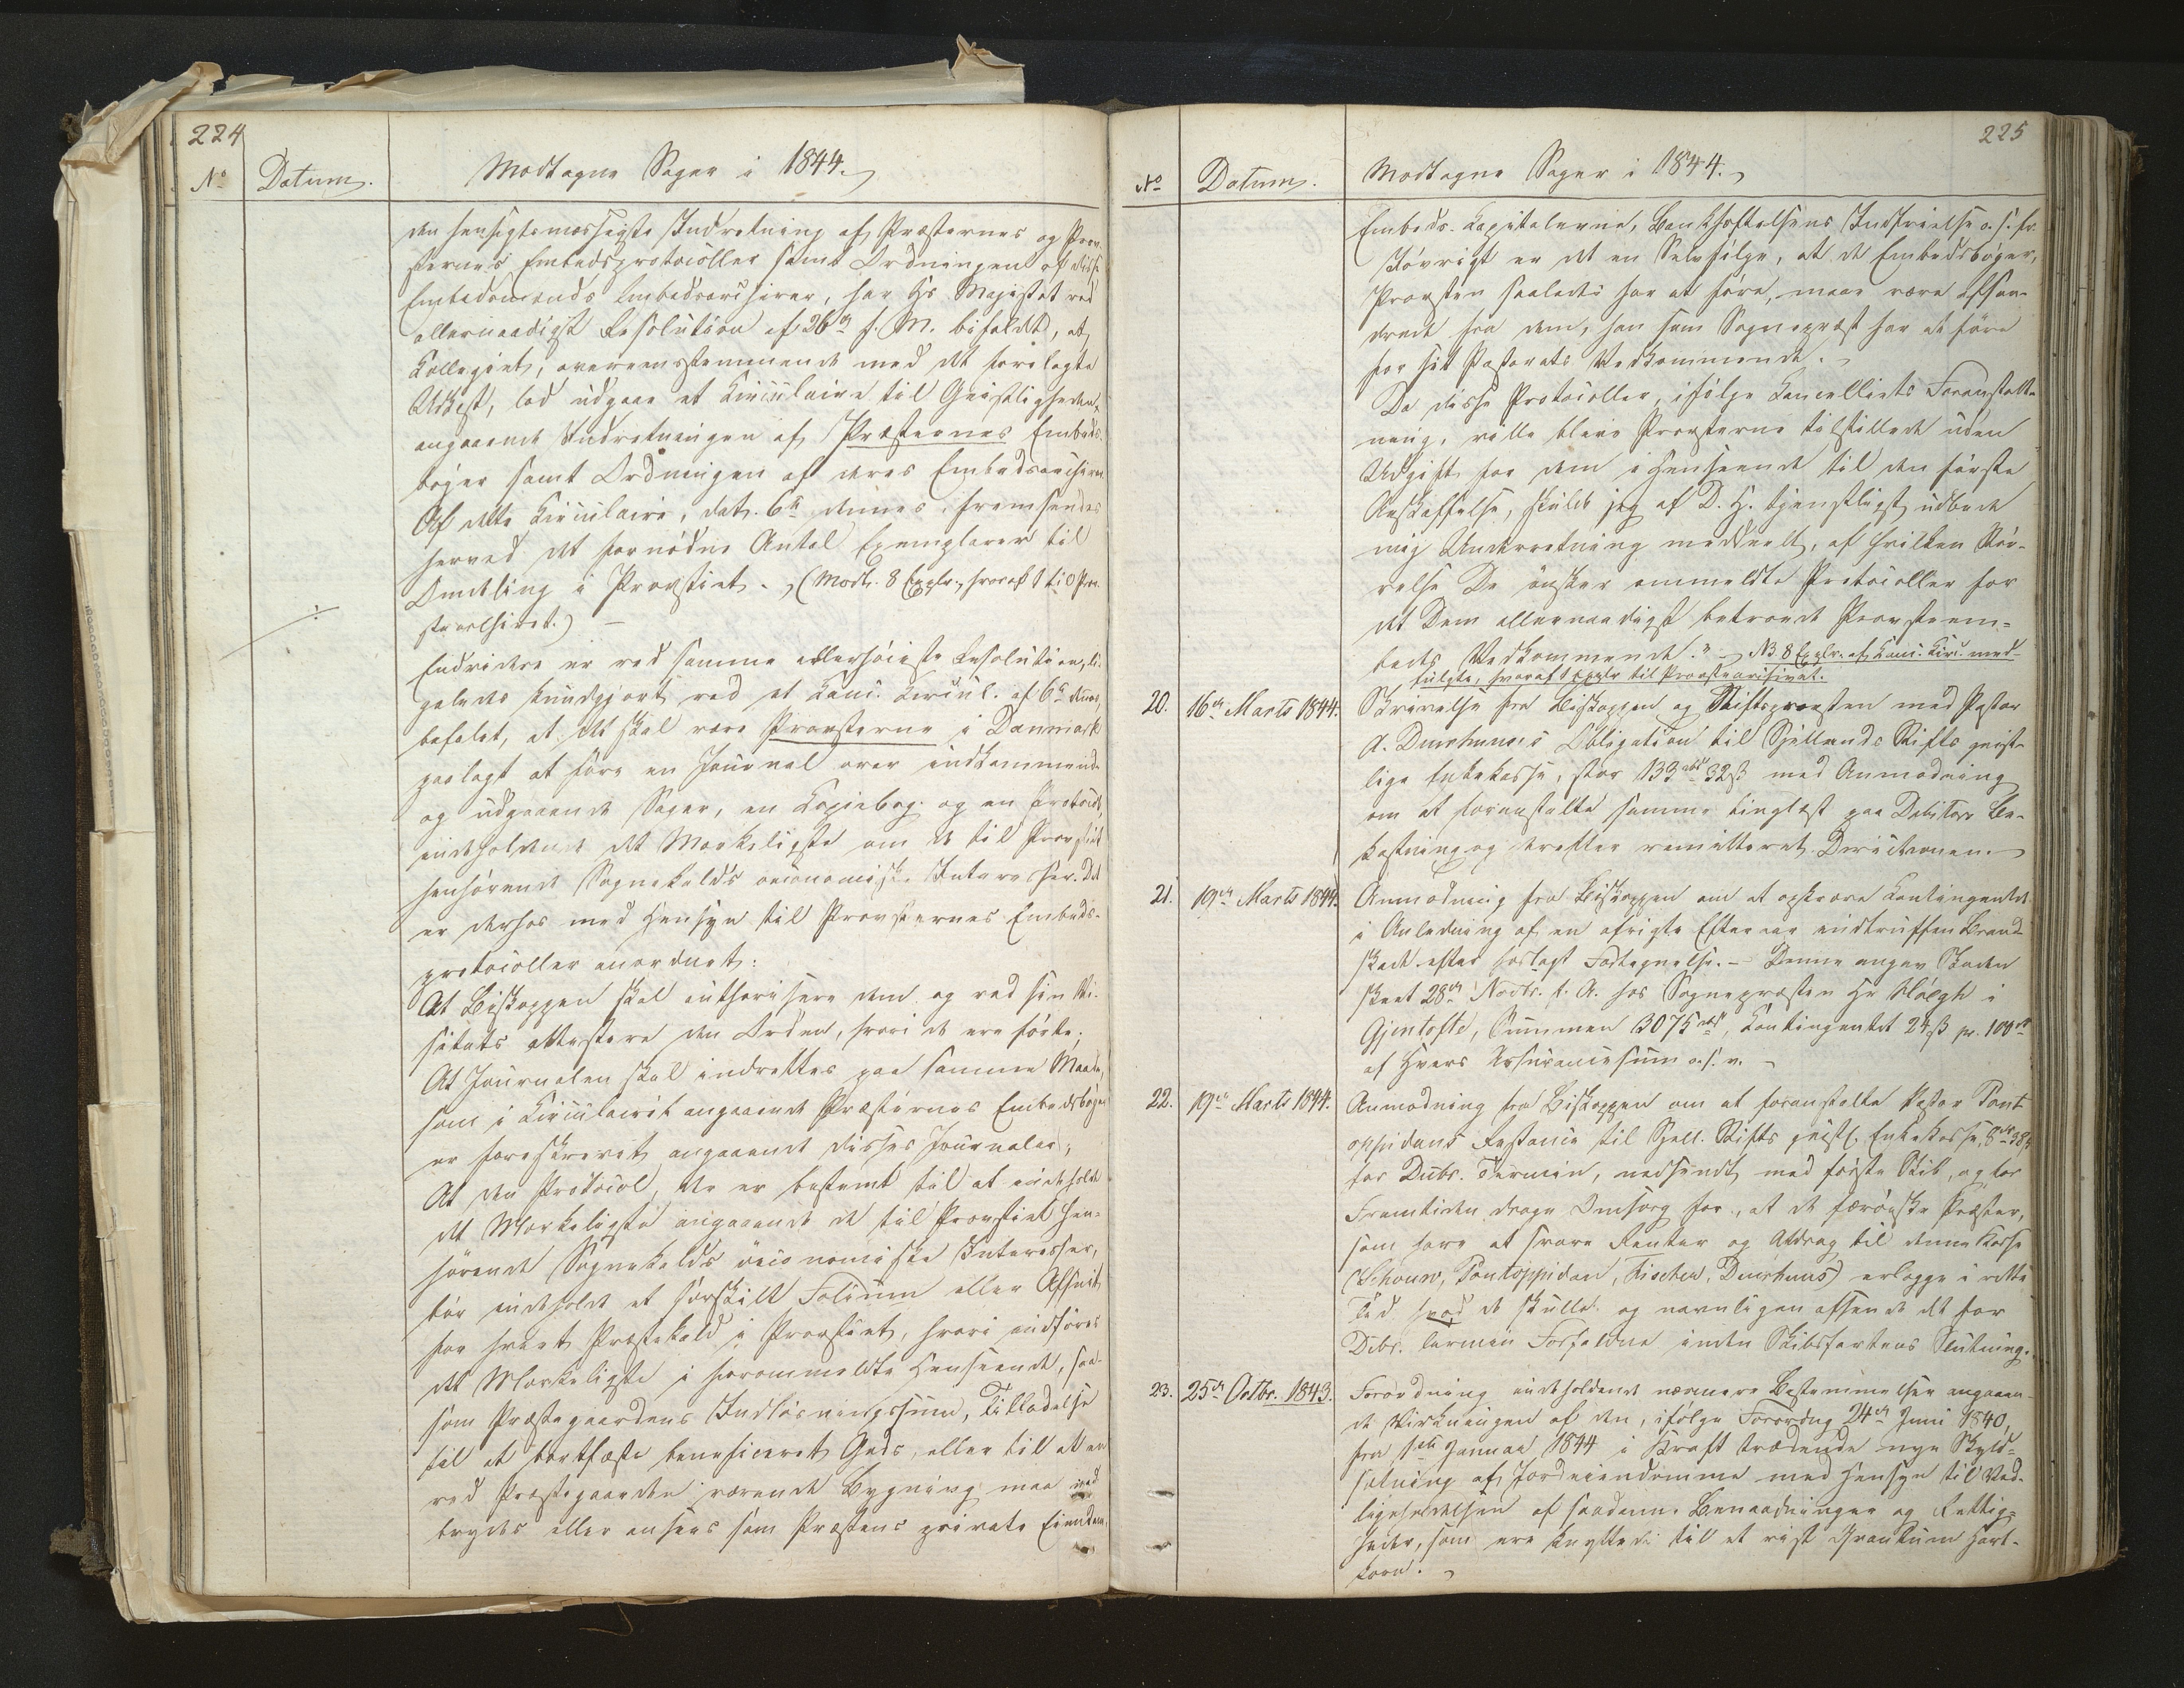 224
No Datum. Modtagne Sager i 1844.
den hensigtsmæssigste Indretning af Præsternes og Prov-
sternes Embedsprotocoller samt Ordningen af disse
Embedsmænds Embedsarchiver, har Hs Majestæt ved
allernaadigst Resolution af 26de f. M. bifaldt, at
Collegiet, overeensstemmende med det forelagte
Udkast, lod udgaae et Circulaire til Geistligheden,
angaaende Indretningen af Præsternes Embeds-
bøger samt Ordningen af deres Embedsarchiver.
Af dette Circulaire, dat. 6te dennes, fremsendes
herved det fornødne Antal Exemplarer til
Omdeling i Provstiet. (Modt. 8 Explr., hvoraf 1 til Prov-
stearchivet.) –
÷
Endvidere er ved samme allerhøieste Resolution, li-
geledes kundgjort ved et Canc. Circul. af 6te dennes,
befalet, at det skal være Provsterne i Danmark
paalagt at føre en Journal over indkommende
og udgaaende Sager, en Copiebog og en Protocol,
indeholdende det Mærkeligste om de til Provstiet
henhørende Sognekalds oeconomiske Interesser. Det
er derhos med Hensyn til Provsternes Embeds-
protocoller anordnet:
At Biskoppen skal authorisere dem og ved sin Vi-
sitats attestere den Orden, hvori de ere førte;
At Journalen skal indrettes paa samme Maade,
som i Circulairet angaaende Præsternes Embedsbøger
er foreskrevet angaaende disses Journaler;
At den Protocol, der er bestemt til at indeholde
det Mærkeligste angaaende de til Provstiet hen-
hørende Sognekalds öconomiske Interesser,
bør indeholde et særskilt Folium eller Afsnit
for hvert Præstekald i Provstiet, hvori indføres
det Mærkeligste i forommeldte Henseende, saa-
som Præstegaardens Indløsningssum, Tilladelse
til at bortfæste beneficeret Gods, eller til at en
ved Præstegaarden værende Bygning maa ned-
brydes eller ansees som Præstens private Eiendom,
225
No Datum. Modtagne Sager i 1844.
Embeds-Capitalerne, Bankhæftelsens Indfrielse o. s. fr.
Iövrigt er det en Selvfölge, at de Embedsbøger,
Provsten saaledes har at føre, maae være afson-
drede fra dem, han som Sognepræst har at føre
for sit Pastorats Vedkommende.
Da disse Protocoller, ifølge Cancelliets Foranstalt-
ning, ville blive Provsterne tilstillede uden
Udgift for dem i Henseende til den første
Anskaffelse, skulde jeg af D. H. tjenstligst udbede
mig Underretning meddeelt, af hvilken Stör-
relse De ønsker ommeldte Protocoller for
det Dem allernaadigst betroede Provsteem-
beds Vedkommende." – NB 8 Explr. af Canc. Circ. med-
fulgte, hvoraf 1 Explr til Provstearchivet.
20. 16de Marts 1844. Skrivelse fra Biskoppen og Stiftsprovsten med Pastor
A. Duurhuus's Obligation til Sjellands Stifts geist-
lige Enkekasse, stor 133 rbd 32 ß med Anmodning
om at foranstalte samme tinglæst paa Debitors Be-
kostning og derefter remitteret Directionen.
21. 19de Marts 1844. Anmodning fra Biskoppen om at opkræve Contingentet
i Anledning af en afvigte Efteraar indtruffen Brand-
skade efter forlagt Fortegnelse. – Denne angav Skaden
skeet 28de Novbr. f. A. hos Sognepræsten Hr Høegh i
Gjentofte, Summen 3075 rbd, Contingentet 24 ß pr. 100 rd
af Hvers Assurancesum o. s. v. –
22. 19de Marts 1844. Anmodning fra Biskoppen om at foranstalte Pastor Pont-
oppidans Restance til Sjell. Stifts geistl. Enkekasse, 8 rd 38 ß
for Dcbr. Termin, nedsendt med første Skib, og for
Fremtiden drage Omsorg for, at de færøiske Præster,
som have at svare Renter og Afdrag til denne Kasse
(Schouw, Pontoppidan, Fischer, Duurhuus) erlægge i rette
Tid hvad de skulle og navnligen afsende det for
Dcbr. Termin Forfaldne inden Skibsfartens Slutning.
23. 25de Octbr. 1843. Forordning indeholdende nærmere Bestemmelser angaaen-
de Virkningen af den, ifølge Forordng 24de Juni 1840,
fra 1ste Januar 1844 i Kraft trædende nye Skyld-
sætning af Jordeiendomme med Hensyn til Ved-
ligeholdelsen af saadanne Benaadninger og Rettig-
heder, som ere knyttede til et vist Qvantum Hart-
korn.